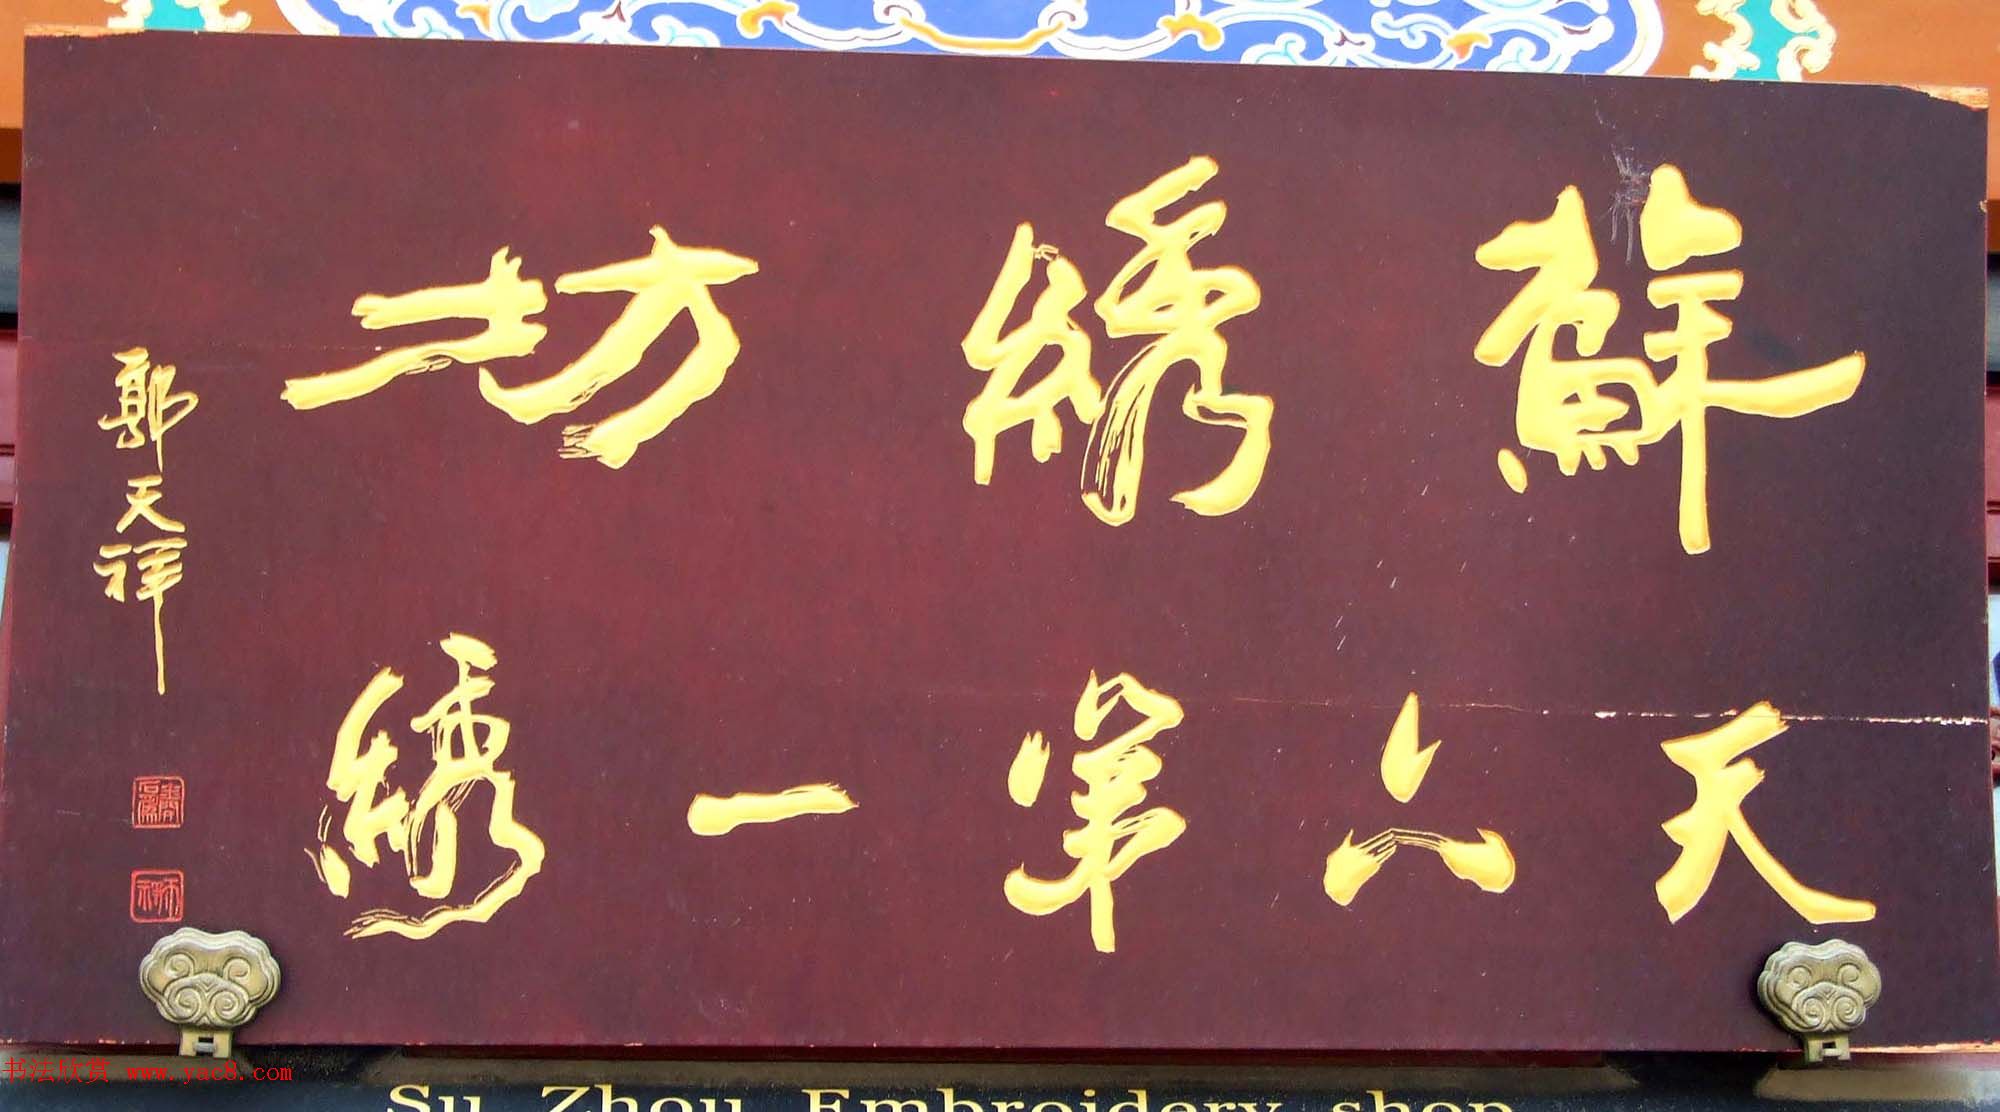 蘇綉坊
天下第一綉
郭天祥
天祥
书法欣赏 www.yac8.com
Su Zhou Embroidery shop